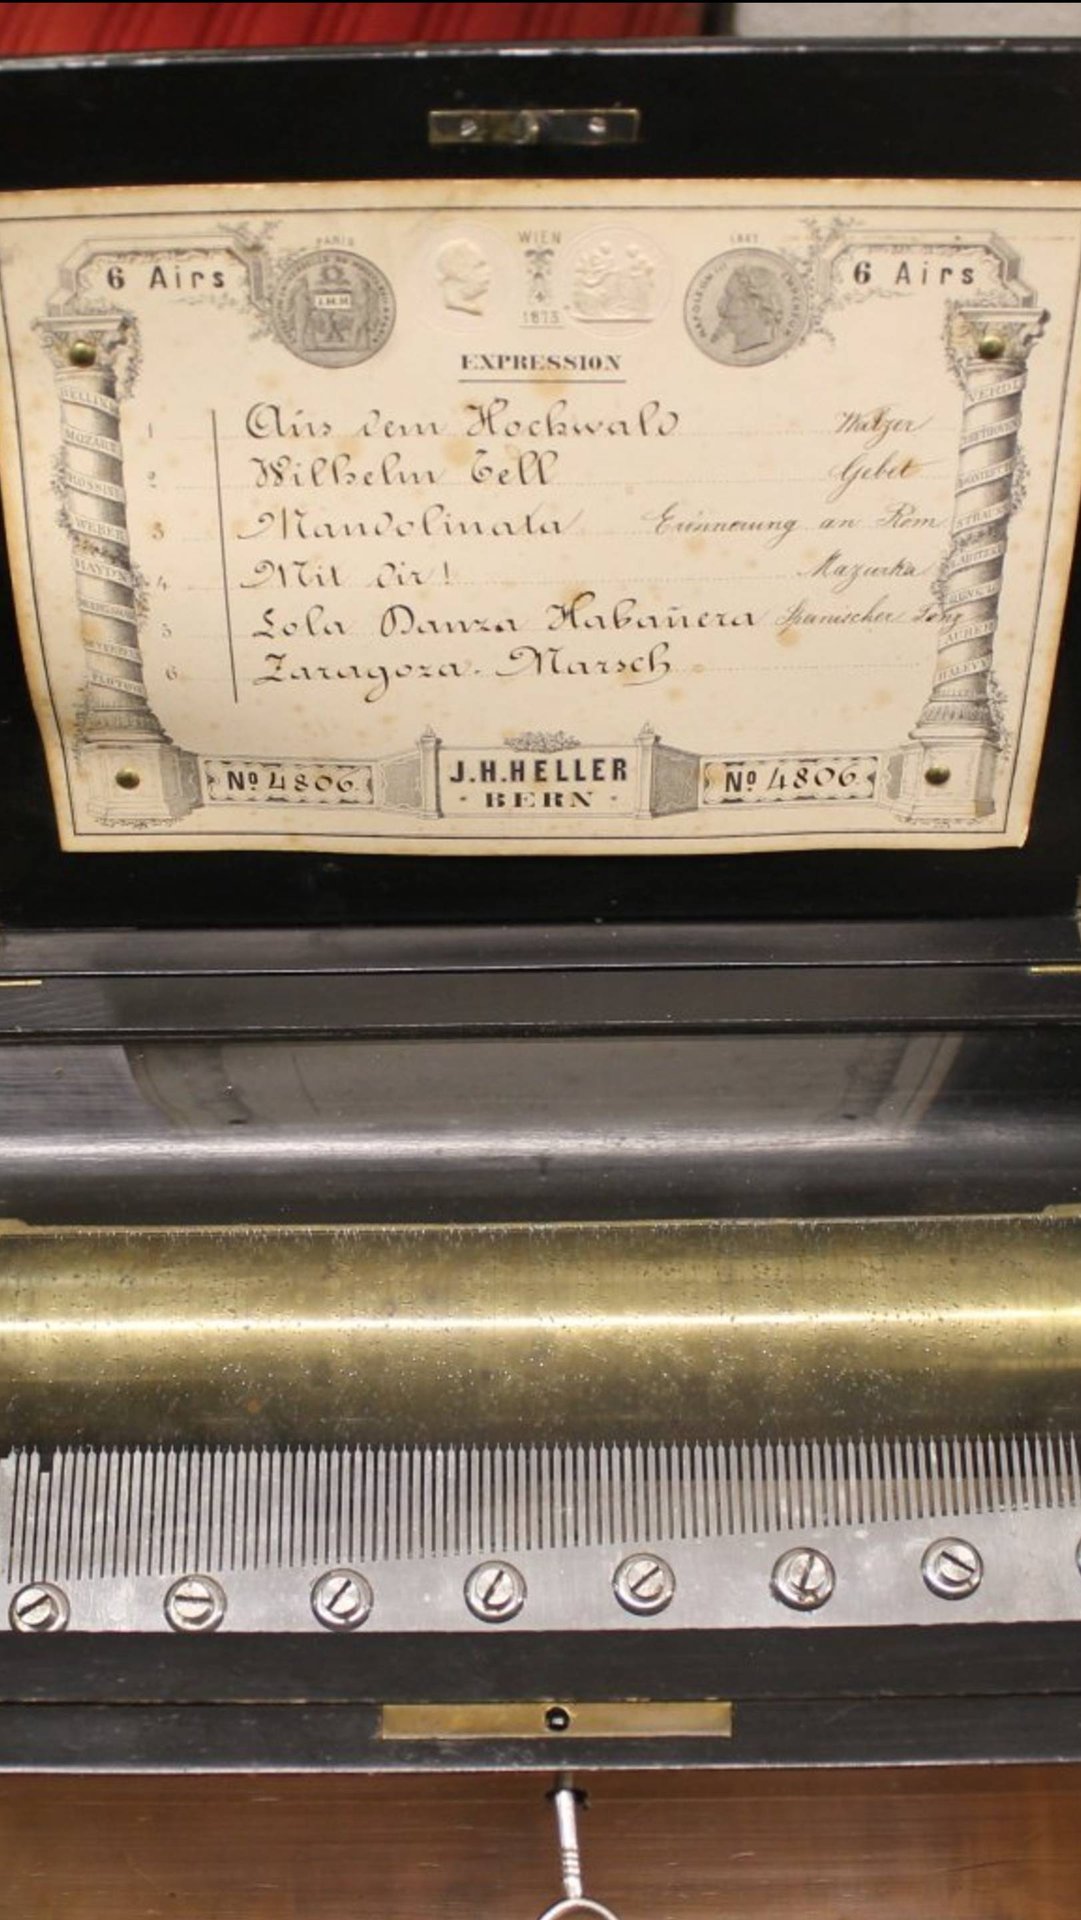 PARIS
WIEN
1867
6 Airs
6 Airs
J.H.H.
NAPOLEON III EMPEREUR
1873
EXPRESSION
1 Aus dem Hochwald Walzer
2 Wilhelm Tell Gebet
3 Mandolinata Erinnerung an Rom
4 Mit dir! Mazurka
5 Lola Danza Habañera Spanischer Tanz
6 Zaragoza. Marsch
BELLINI
MOZART
ROSSINI
WEBER
HAYDN
MEYERBEER
FLOTOW
VERDI
BEETHOVEN
DONIZETTI
STRAUSS
AUBER
HALEVY
No 4806.
J.H.HELLER
BERN
No 4806.